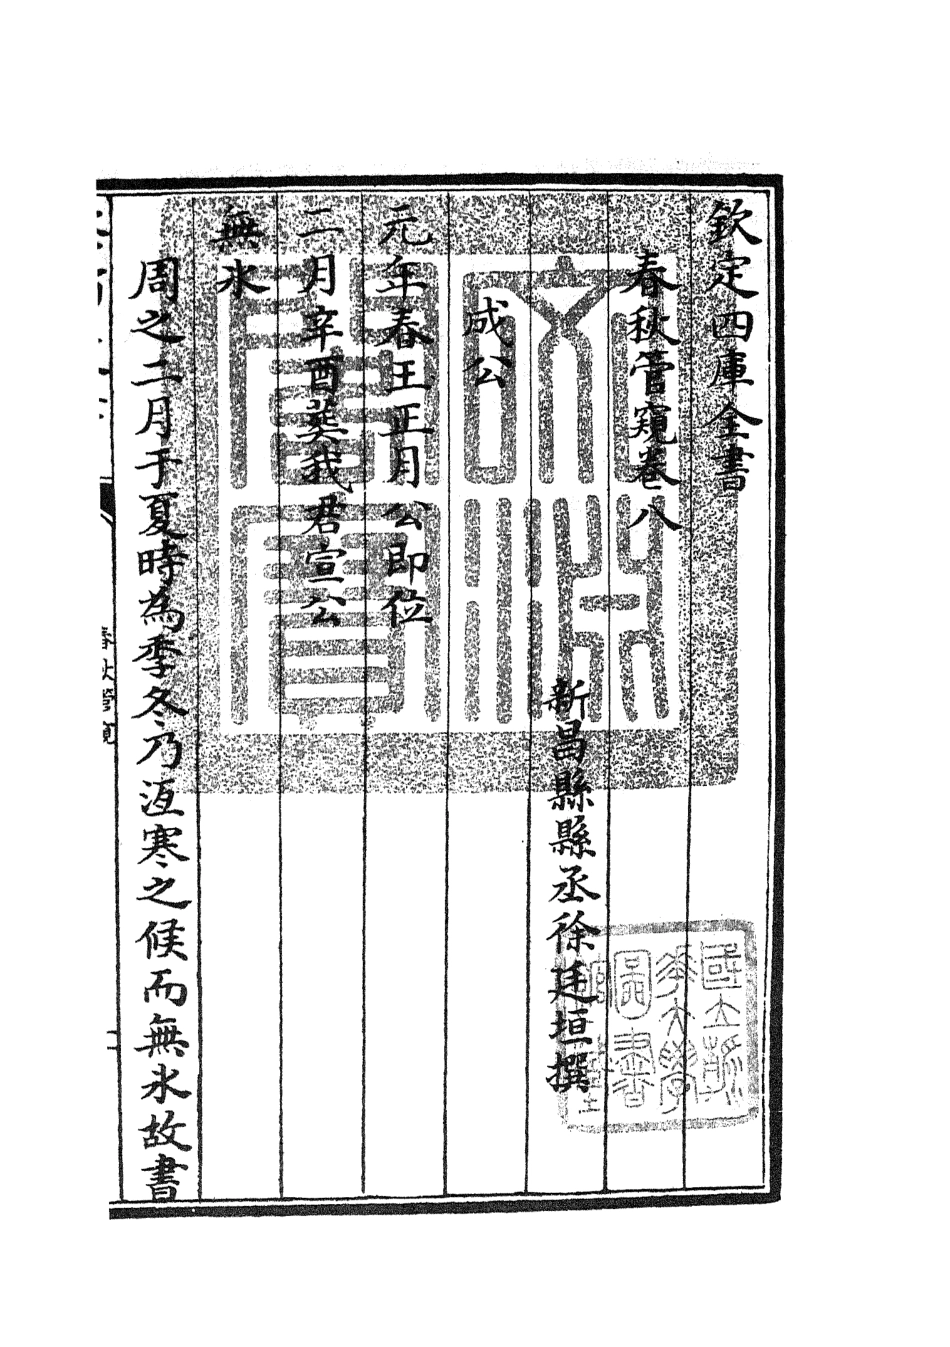 欽定四庫全書
春秋管窺卷八
新昌縣縣丞徐廷垣撰
成公
元年春王正月公即位
二月辛酉葬我君宣公
無氷
周之二月于夏時為季冬乃沍寒之候而無氷故書
春秋管窺